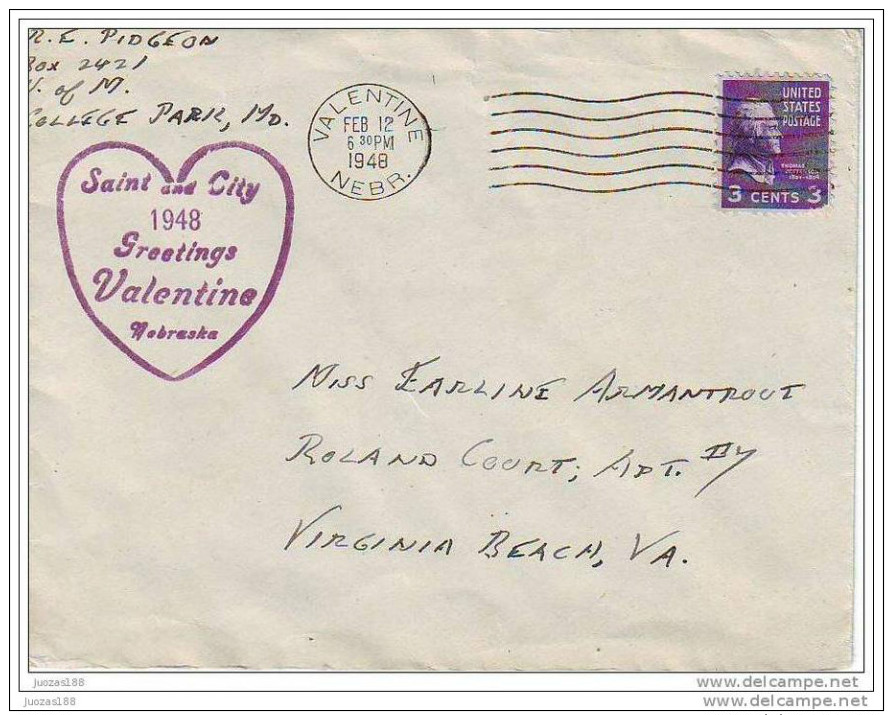 R. E. PIDGEON
Box 2421
U. of M.
COLLEGE PARK, MD.
VALENTINE
FEB 12
6 30 PM
1948
NEBR.
UNITED
STATES
POSTAGE
THOMAS
JEFFERSON
3 CENTS 3
Saint and City
1948
Greetings
Valentine
Nebraska
MISS EARLINE ARMANTROUT
ROLAND COURT; APT.
VIRGINIA BEACH, VA.
juozas188
www.delcampe.net
juozas188
www.delcampe.net